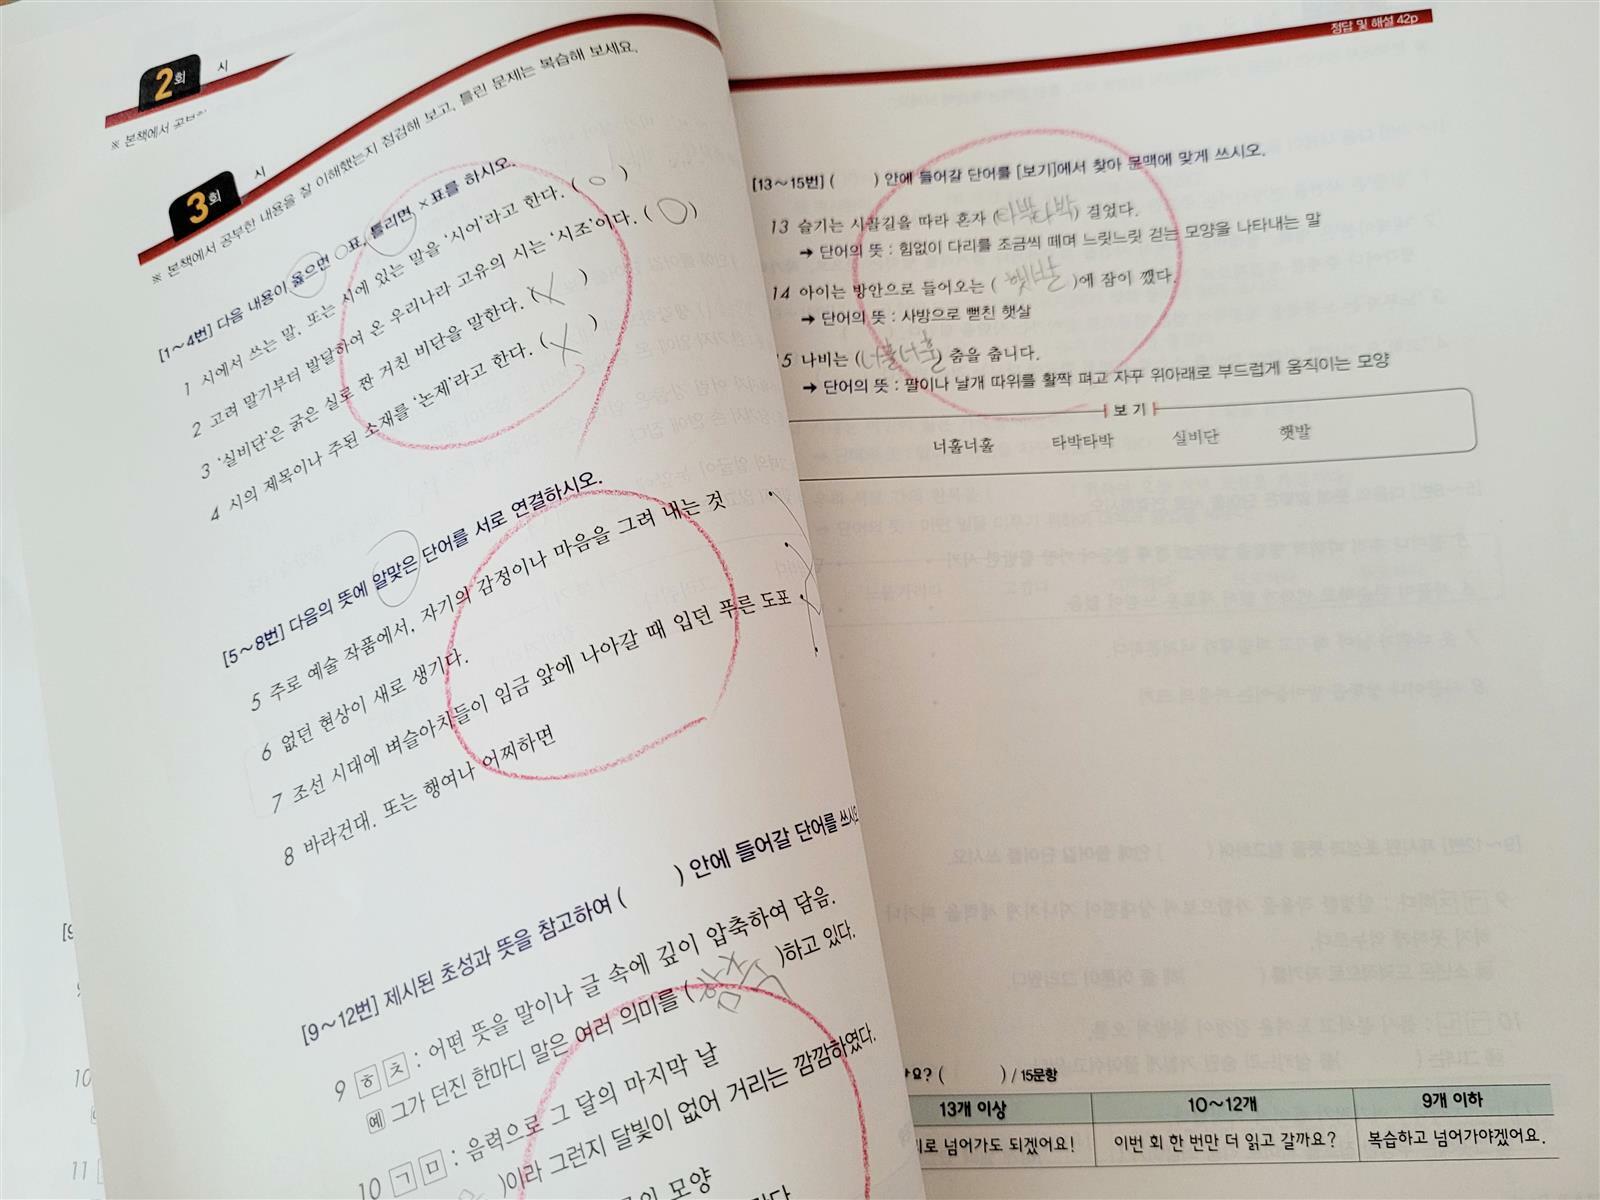 2회 시
※ 본책에서
3회 시
※ 본책에서 공부한 내용을 잘 이해했는지 점검해 보고, 틀린 문제는 복습해 보세요.
[1~4번] 다음 내용이 옳으면 ○표, 틀리면 ×표를 하시오.
1 시에서 쓰는 말. 또는 시에 있는 말을 '시어'라고 한다. ( ○ )
2 고려 말기부터 발달하여 온 우리나라 고유의 시는 '시조'이다. ( ○ )
3 '실비단'은 굵은 실로 짠 거친 비단을 말한다. ( × )
4 시의 제목이나 주된 소재를 '논제'라고 한다. ( × )
[5~8번] 다음의 뜻에 알맞은 단어를 서로 연결하시오.
5 주로 예술 작품에서, 자기의 감정이나 마음을 그려 내는 것
6 없던 현상이 새로 생기다.
7 조선 시대에 벼슬아치들이 임금 앞에 나아갈 때 입던 푸른 도포
8 바라건대. 또는 행여나 어찌하면
[9~12번] 제시된 초성과 뜻을 참고하여 ( ) 안에 들어갈 단어를 쓰시오
9 ㅎㅊ : 어떤 뜻을 말이나 글 속에 깊이 압축하여 담음.
예 그가 던진 한마디 말은 여러 의미를 ( 함축 )하고 있다.
10 ㄱㅁ : 음력으로 그 달의 마지막 날
)이라 그런지 달빛이 없어 거리는 깜깜하였다.
모양
10
11
정답 및 해설 42p
[13~15번] ( ) 안에 들어갈 단어를 [보기]에서 찾아 문맥에 맞게 쓰시오.
13 슬기는 시골길을 따라 혼자 (타박타박) 걸었다.
→ 단어의 뜻 : 힘없이 다리를 조금씩 떼며 느릿느릿 걷는 모양을 나타내는 말
14 아이는 방안으로 들어오는 ( 햇발 )에 잠이 깼다.
→ 단어의 뜻 : 사방으로 뻗친 햇살
5 나비는 (너훌너훌) 춤을 춥니다.
→ 단어의 뜻 : 팔이나 날개 따위를 활짝 펴고 자꾸 위아래로 부드럽게 움직이는 모양
보기
너훌너훌 타박타박 실비단 햇발
요? ( ) / 15문항
13개 이상 10~12개 9개 이하
로 넘어가도 되겠어요! 이번 회 한 번만 더 읽고 갈까요? 복습하고 넘어가야겠어요.